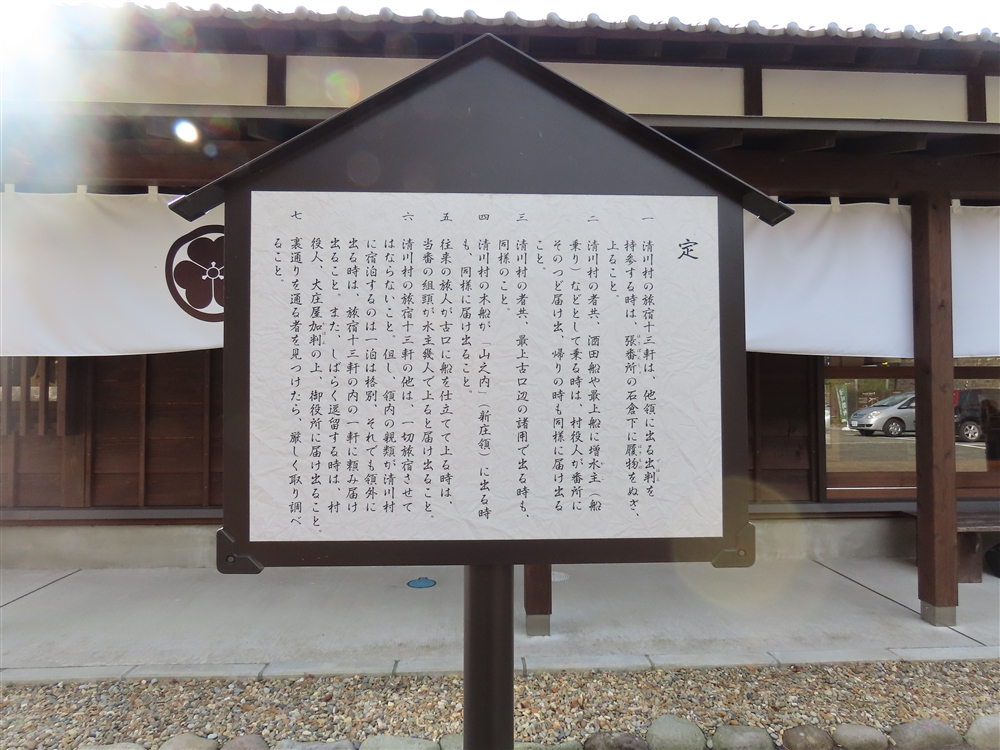 定
一 清川村の旅宿十三軒は、他領に出る出判を
持参する時は、張番所の石倉下に履物をぬぎ、
上ること。
二 清川村の者共、酒田船や最上船に増水主（船
乗り）などとして乗る時は、村役人が番所に
そのつど届け出、帰りの時も同様に届け出る
こと。
三 清川村の者共、最上古口辺の諸用で出る時も、
同様のこと。
四 清川村の木船が「山之内」（新庄領）に出る時
も、同様に届け出ること。
五 往来の旅人が古口に船を仕立てて上る時は、
当番の組頭が水主幾人で上ると届け出ること。
六 清川村の旅宿十三軒の他は、一切旅宿させて
はならないこと、但し、領内の親類が清川村
に宿泊するのは一泊は格別、それでも領外に
出る時は、旅宿十三軒の内の一軒に頼み届け
出ること。また、しばらく逗留する時は、村
役人、大庄屋加判の上、御役所に届け出ること。
七 裏通りを通る者を見つけたら、厳しく取り調べ
ること。